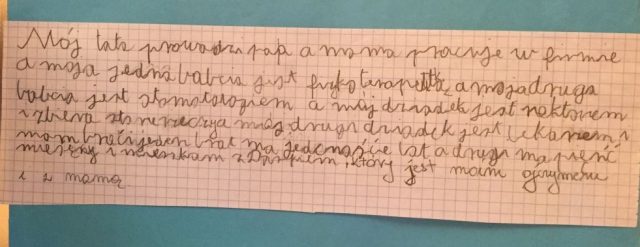 Mój tata prowadzi pap a mama pracuje w firmie
a moja jedna babcia jest fizkoterapeltką, a moja druga
babcia jest stomatologiem a mój dziadek jest rektorem
i zbiera stare rzeczy a mój drugi dziadek jest lekarzem i
mam braci jeden brat ma jedenaście lat a drugi ma pięć
mieszkam z i jest moim ojczymem
i z mamą